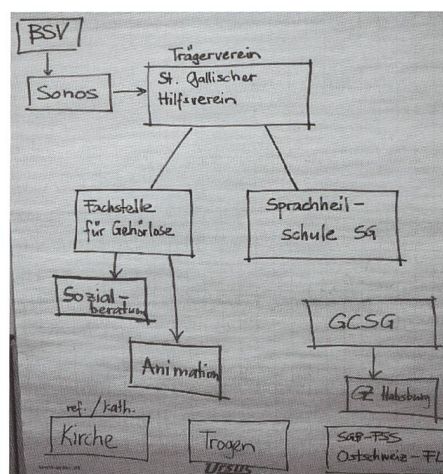 BSV
Sonos
Trägerverein
St. Gallischer
Hilfsverein
Fachstelle
für Gehörlose
Sprachheil-
schule SG
Sozial-
beratung
Animation
GCSG
GZ Habsburg
ref./kath.
Kirche
Trogen
SGB-FSS
Ostschweiz-FL
URSUS